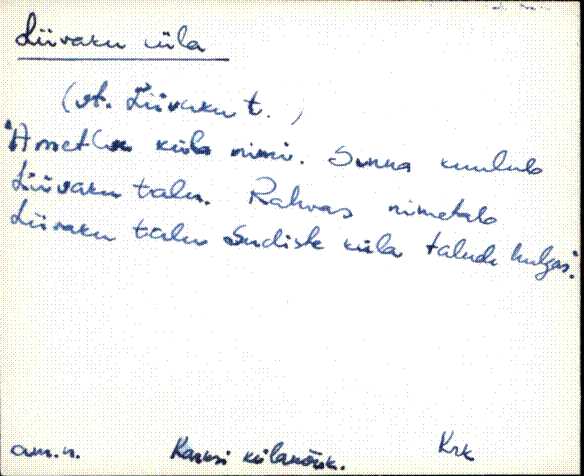 Liivaku küla
(vt. Liivaku t.)
"Ametlik küla nimi. Sinna kuulub
Liivaku talu. Rahvas nimetab
Liivaku talu Sudiste küla talude hulgas."
am.n. Karksi külanõuk. Krk